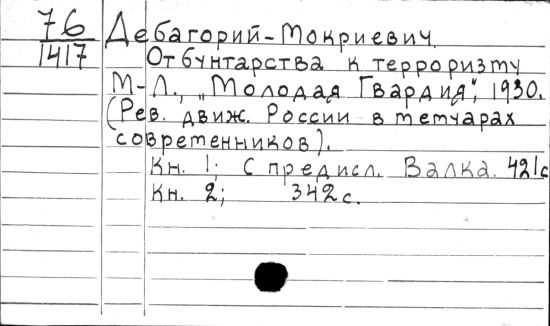 76 Дебагорий-Мокриевич.
1417 От бунтарства к терроризму
М-Л., "Молодая Гвардия", 1930.
(Рев. движ. России в метуарах
современников).
Кн. 1; С предисл. Валка. 421с
Кн. 2; 342с.